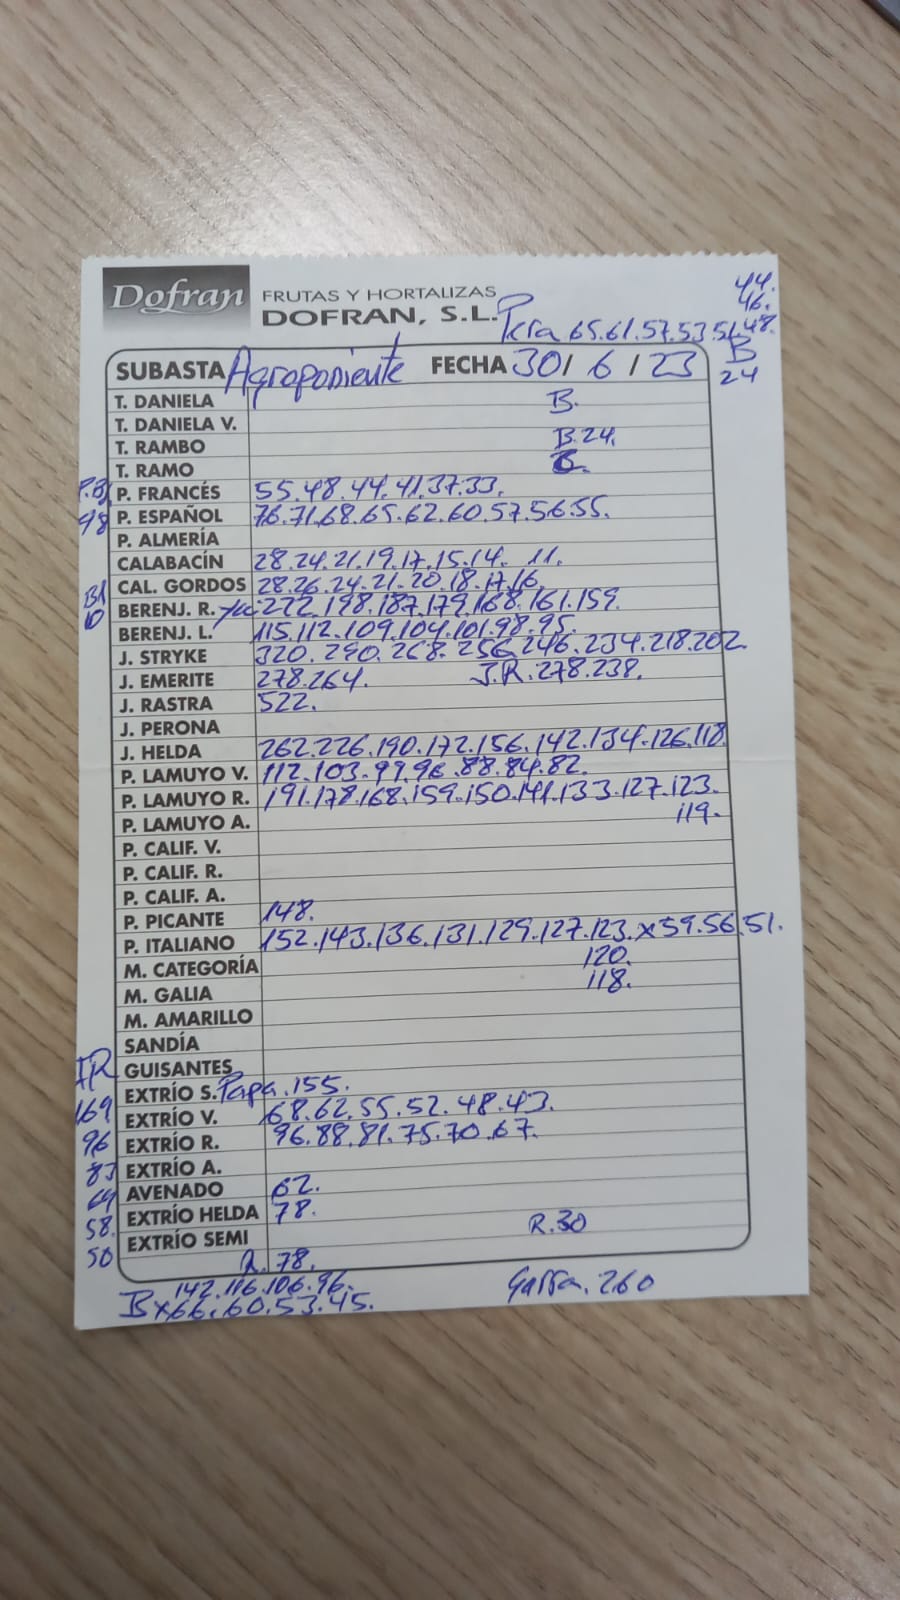 Dofran FRUTAS Y HORTALIZAS
DOFRAN, S.L.
44.
46.
Pera 65.61.57.53.51.48.
B
24
SUBASTA Agroponiente FECHA 30/6/23
T. DANIELA B.
T. DANIELA V.
T. RAMBO B.24.
T. RAMO
P.B P. FRANCÉS 55.48.44.41.37.33.
48 P. ESPAÑOL 76.71.68.65.62.60.57.56.55.
P. ALMERÍA
CALABACÍN 28.24.21.19.17.15.14. 11.
CAL. GORDOS 28.26.24.21.20.18.17.16.
BERENJ. R. 222.198.187.179.168.161.159.
BERENJ. L. 115.112.109.104.101.98.95.
J. STRYKE 320.290.268.256.246.234.218.202.
J. EMERITE 278.264. J.R.278.238.
J. RASTRA 522.
J. PERONA
J. HELDA 262.226.190.172.156.142.134.126.118
P. LAMUYO V. 112.103.99.96.88.84.82.
P. LAMUYO R. 191.178.168.159.150.141.133.127.123.
P. LAMUYO A. 119.
P. CALIF. V.
P. CALIF. R.
P. CALIF. A.
P. PICANTE 148.
P. ITALIANO 152.143.136.131.129.127.123.x59.56.51.
M. CATEGORÍA 120.
M. GALIA 118.
M. AMARILLO
SANDÍA
GUISANTES
EXTRÍO S. Papa.155.
169 EXTRÍO V. 68.62.55.52.48.43.
96 EXTRÍO R. 96.88.81.75.70.67.
83 EXTRÍO A.
64 AVENADO 62.
58. EXTRÍO HELDA 78.
50 EXTRÍO SEMI R.30
R.78.
142.116.106.96.
Bx66.60.53.45.
Garra.260